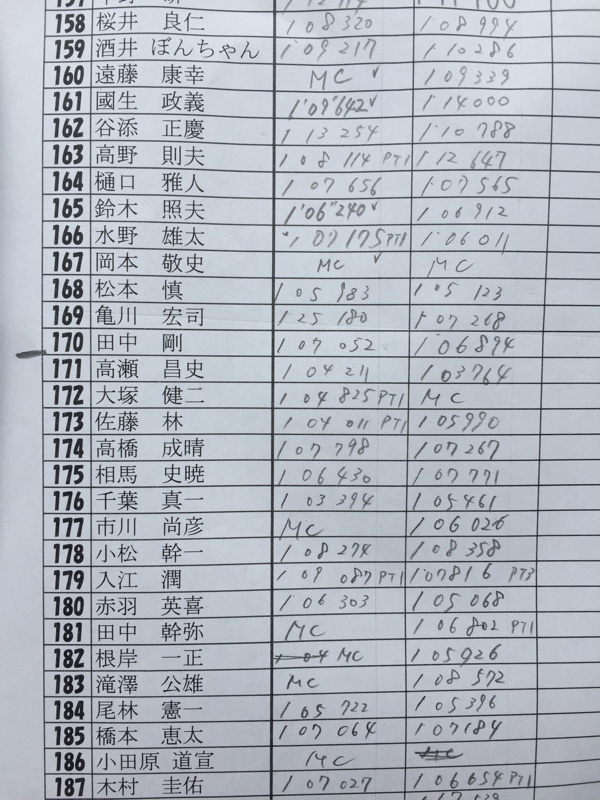 158 桜井 良仁 1 08 320 1 08 994
159 酒井 ぼんちゃん 1 09 217 1 10 286
160 遠藤 康幸 MC ✓ 1 09 339
161 國生 政義 1'09"642 ✓ 1 14 000
162 谷添 正慶 1 13 254 1 10 788
163 高野 則夫 1 08 114 PT1 1 12 647
164 樋口 雅人 1 07 656 1 07 565
165 鈴木 照夫 1'06"240 ✓ 1 06 912
166 水野 雄太 1 07 175 PT1 1 06 011
167 岡本 敬史 MC ✓ MC
168 松本 慎 1 05 983 1 05 123
169 亀川 宏司 1 25 180 1 07 268
170 田中 剛 1 07 052 1 06 894
171 高瀬 昌史 1 04 211 1 03 764
172 大塚 健二 1 04 825 PT1 MC
173 佐藤 林 1 04 011 PT1 1 05 990
174 高橋 成晴 1 07 798 1 07 267
175 相馬 史暁 1 06 430 1 07 771
176 千葉 真一 1 03 394 1 05 461
177 市川 尚彦 MC 1 06 026
178 小松 幹一 1 08 274 1 08 358
179 入江 潤 1 09 087 PT1 1 07 816 PT3
180 赤羽 英喜 1 06 303 1 05 068
181 田中 幹弥 MC 1 06 802 PT1
182 根岸 一正 1 04 MC 1 05 926
183 滝澤 公雄 MC 1 08 572
184 尾林 憲一 1 05 722 1 05 396
185 橋本 恵太 1 07 064 1 07 184
186 小田原 道宣 MC MC
187 木村 圭佑 1 07 027 1 06 654 PT1